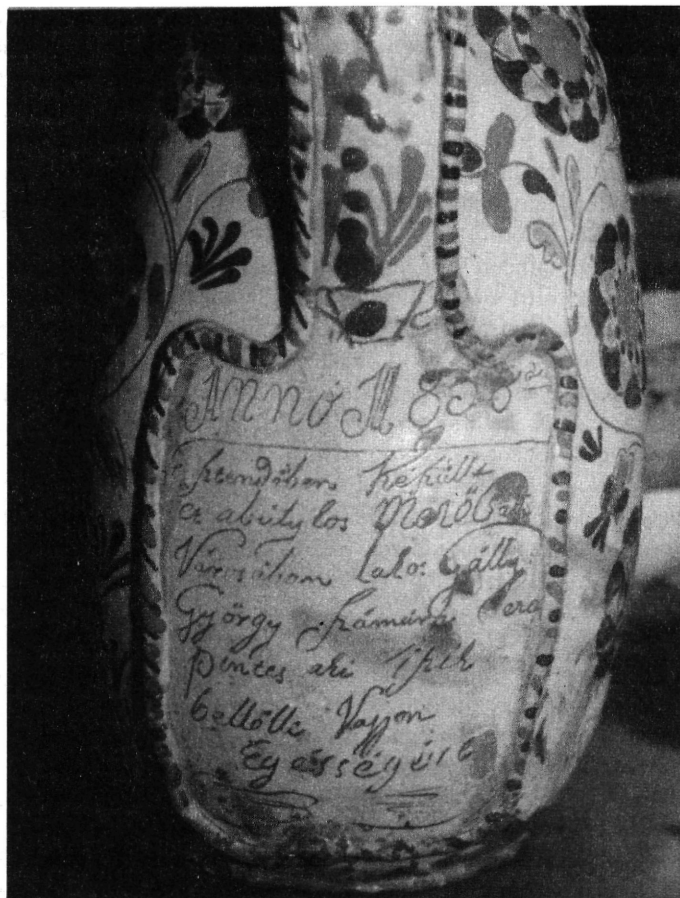 Annó 1838
Szendöben Késült
ez abutylos Mező
Városában lakos Gálly
György Számára
pintes aki iszik
bellőlle Vajjon
Egésségire